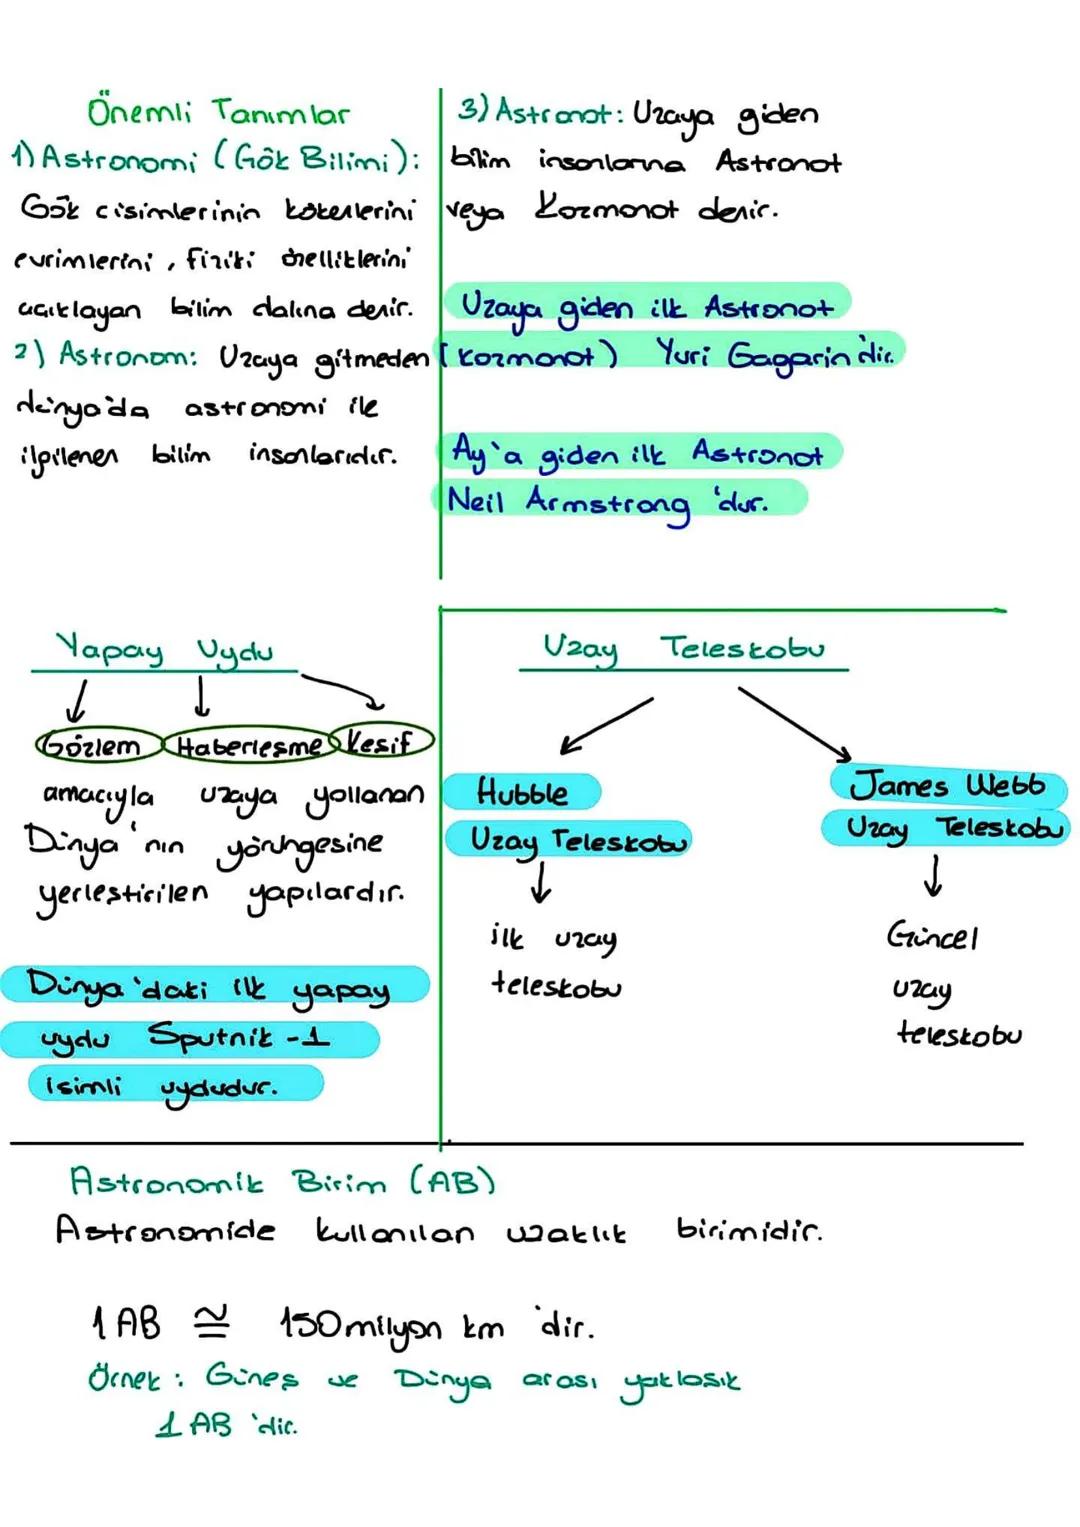 Önemli Tanımlar
1) Astronomi (Gök Bilimi):
Gök cisimlerinin kökenlerini
evrimlerini, fiziki özelliklerini
açıklayan bilim dalına denir.
2) Astronom: Uzaya gitmeden
dünya'da astronomi ile
ilgilenen bilim insanlarıdır.
3) Astronot: Uzaya giden
bilim insanlarına Astronot
veya Kozmonot denir.
Uzaya giden ilk Astronot
(kozmonot) Yuri Gagarin'dir.
Ay'a giden ilk Astronot
Neil Armstrong 'dur.
Yapay Uydu
Gözlem Haberleşme Keşif
amacıyla uzaya yollanan
Dünya'nın yörüngesine
yerleştirilen yapılardır.
Dünya'daki ilk yapay
uydu Sputnik-1
isimli uydudur.
Uzay Teleskobu
Hubble
Uzay Teleskobu
ilk uzay
teleskobu
James Webb
Uzay Teleskobu
Güncel
uzay
teleskobu
Astronomik Birim (AB)
Astronomide kullanılan uzaklık birimidir.
1 AB ≅ 150 milyon km 'dir.
Örnek: Güneş ve Dünya arası yaklaşık
1 AB 'dir.